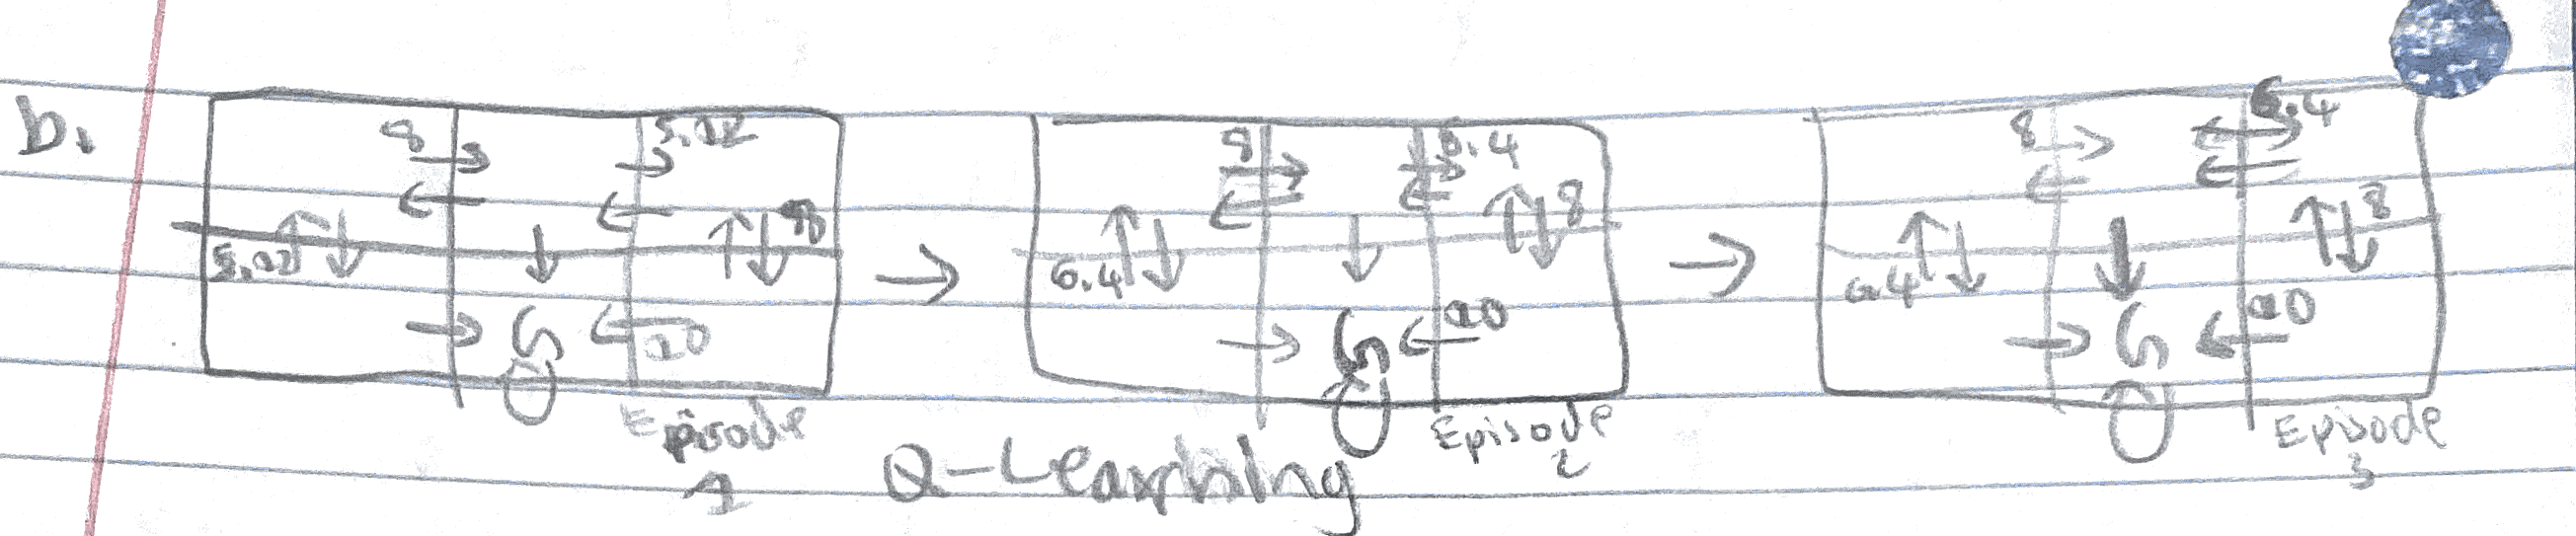 b.
8 → 5.12 →
← ←
5.12 ↑ ↓ ↓ ↑ ↓ 8
→ G ← 10
Episode 1
→
8 → 6.4 →
← ←
6.4 ↑ ↓ ↓ ↑ ↓ 8
→ G ← 10
Episode 2
→
8 → 6.4
← ←
6.4 ↑ ↓ ↓ ↑ ↓ 8
→ G ← 10
Episode 3
Q-Learning